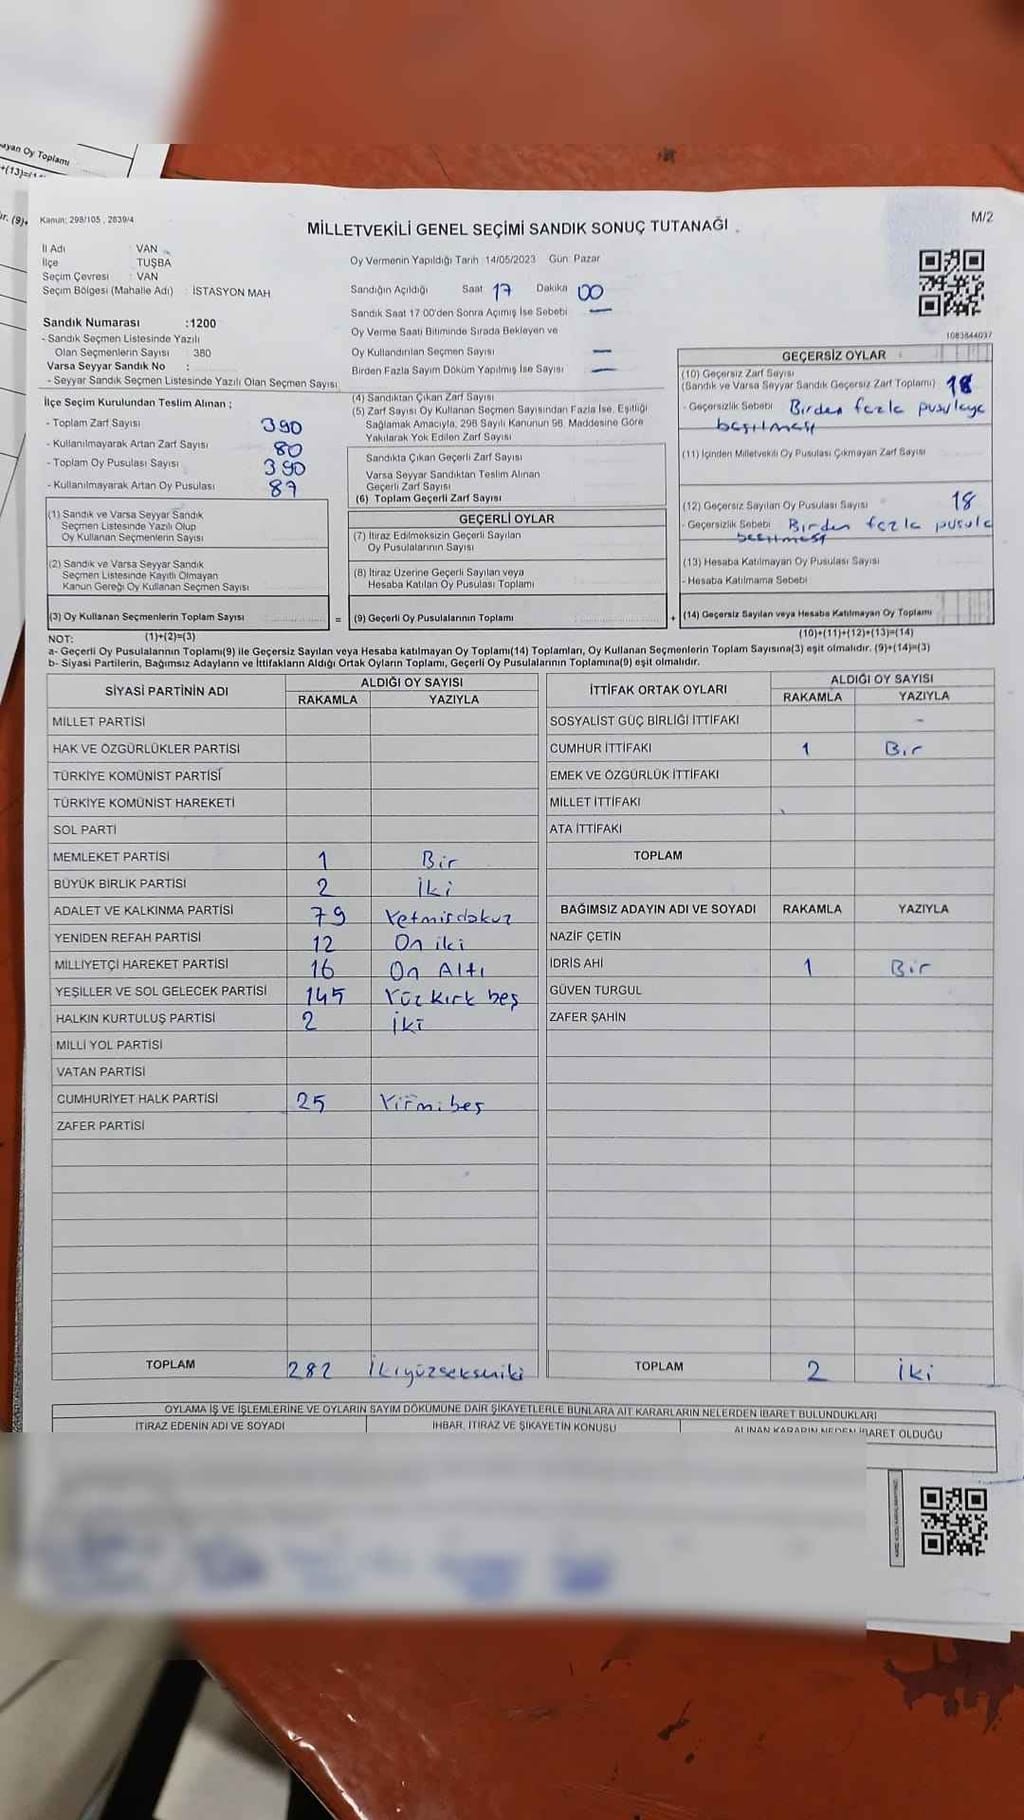 ayan Oy Toplamı
Kanun: 298/105 , 2839/4
MİLLETVEKİLİ GENEL SEÇİMİ SANDIK SONUÇ TUTANAĞI
M/2
İl Adı : VAN
İlçe : TUŞBA
Seçim Çevresi : VAN
Seçim Bölgesi (Mahalle Adı) : İSTASYON MAH
Sandık Numarası :1200
- Sandık Seçmen Listesinde Yazılı
Olan Seçmenlerin Sayısı : 380
Varsa Seyyar Sandık No :
- Seyyar Sandık Seçmen Listesinde Yazılı Olan Seçmen Sayısı
Oy Vermenin Yapıldığı Tarih 14/05/2023 Gün: Pazar
Sandığın Açıldığı Saat 17 Dakika 00
Sandık Saat 17:00'den Sonra Açımış İse Sebebi —
Oy Verme Saati Bitiminde Sırada Bekleyen ve
Oy Kullandırılan Seçmen Sayısı —
Birden Fazla Sayım Döküm Yapılmış İse Sayısı —
1083844097
İlçe Seçim Kurulundan Teslim Alınan ;
- Toplam Zarf Sayısı 390
- Kullanılmayarak Artan Zarf Sayısı 80
- Toplam Oy Pusulası Sayısı 390
- Kullanılmayarak Artan Oy Pusulası 87
(1) Sandık ve Varsa Seyyar Sandık
Seçmen Listesinde Yazılı Olup
Oy Kullanan Seçmenlerin Sayısı
(2) Sandık ve Varsa Seyyar Sandık
Seçmen Listesinde Kayıtlı Olmayan
Kanun Gereği Oy Kullanan Seçmenlerin Sayısı
(3) Oy Kullanan Seçmenlerin Toplam Sayısı =
(1)+(2)=(3)
(4) Sandıktan Çıkan Zarf Sayısı
(5) Zarf Sayısı Oy Kullanan Seçmen Sayısından Fazla İse, Eşitliği
Sağlamak Amacıyla, 298 Sayılı Kanunun 98. Maddesine Göre
Yakılarak Yok Edilen Zarf Sayısı
Sandıkta Çıkan Geçerli Zarf Sayısı
Varsa Seyyar Sandıktan Teslim Alınan
Geçerli Zarf Sayısı
(6) Toplam Geçerli Zarf Sayısı
GEÇERLİ OYLAR
(7) İtiraz Edilmeksizin Geçerli Sayılan
Oy Pusulalarının Sayısı
(8) İtiraz Üzerine Geçerli Sayılan veya
Hesaba Katılan Oy Pusulası Toplamı
(9) Geçerli Oy Pusulalarının Toplamı +
GEÇERSİZ OYLAR
(10) Geçersiz Zarf Sayısı
(Sandık ve Varsa Seyyar Sandık Geçersiz Zarf Toplamı) 18
- Geçersizlik Sebebi Birden fazla pusulaya
basılması
(11) İçinden Milletvekili Oy Pusulası Çıkmayan Zarf Sayısı
(12) Geçersiz Sayılan Oy Pusulası Sayısı 18
- Geçersizlik Sebebi Birden fazla pusula
basılması
(13) Hesaba Katılmayan Oy Pusulası Sayısı
- Hesaba Katılmama Sebebi
(14) Geçersiz Sayılan veya Hesaba Katılmayan Oy Toplamı
(10)+(11)+(12)+(13)=(14)
NOT:
a- Geçerli Oy Pusulalarının Toplamı(9) ile Geçersiz Sayılan veya Hesaba katılmayan Oy Toplamı(14) Toplamları, Oy Kullanan Seçmenlerin Toplam Sayısına(3) eşit olmalıdır. (9)+(14)=(3)
b- Siyasi Partilerin, Bağımsız Adayların ve İttifakların Aldığı Ortak Oyların Toplamı, Geçerli Oy Pusulalarının Toplamına(9) eşit olmalıdır.
SİYASİ PARTİNİN ADI ALDIĞI OY SAYISI
RAKAMLA YAZIYLA
MİLLET PARTİSİ
HAK VE ÖZGÜRLÜKLER PARTİSİ
TÜRKİYE KOMÜNİST PARTİSİ
TÜRKİYE KOMÜNİST HAREKETİ
SOL PARTİ
MEMLEKET PARTİSİ 1 Bir
BÜYÜK BİRLİK PARTİSİ 2 İki
ADALET VE KALKINMA PARTİSİ 79 Yetmişdokuz
YENİDEN REFAH PARTİSİ 12 On iki
MİLLİYETÇİ HAREKET PARTİSİ 16 On Altı
YEŞİLLER VE SOL GELECEK PARTİSİ 145 Yüzkırk beş
HALKIN KURTULUŞ PARTİSİ 2 İki
MİLLİ YOL PARTİSİ
VATAN PARTİSİ
CUMHURİYET HALK PARTİSİ 25 Yirmibeş
ZAFER PARTİSİ
TOPLAM 282 İkiyüzsekseniki
İTTİFAK ORTAK OYLARI ALDIĞI OY SAYISI
RAKAMLA YAZIYLA
SOSYALİST GÜÇ BİRLİĞİ İTTİFAKI -
CUMHUR İTTİFAKI 1 Bir
EMEK VE ÖZGÜRLÜK İTTİFAKI
MİLLET İTTİFAKI
ATA İTTİFAKI
TOPLAM
BAĞIMSIZ ADAYIN ADI VE SOYADI RAKAMLA YAZIYLA
NAZİF ÇETİN
İDRİS AHİ 1 Bir
GÜVEN TURGUL
ZAFER ŞAHİN
TOPLAM 2 İki
OYLAMA İŞ VE İŞLEMLERİNE VE OYLARIN SAYIM DÖKÜMÜNE DAİR ŞİKAYETLERLE BUNLARA AİT KARARLARIN NELERDEN İBARET BULUNDUKLARI
İTİRAZ EDENİN ADI VE SOYADI İHBAR, İTİRAZ VE ŞİKAYETİN KONUSU ALINAN KARARIN NEDEN İBARET OLDUĞU